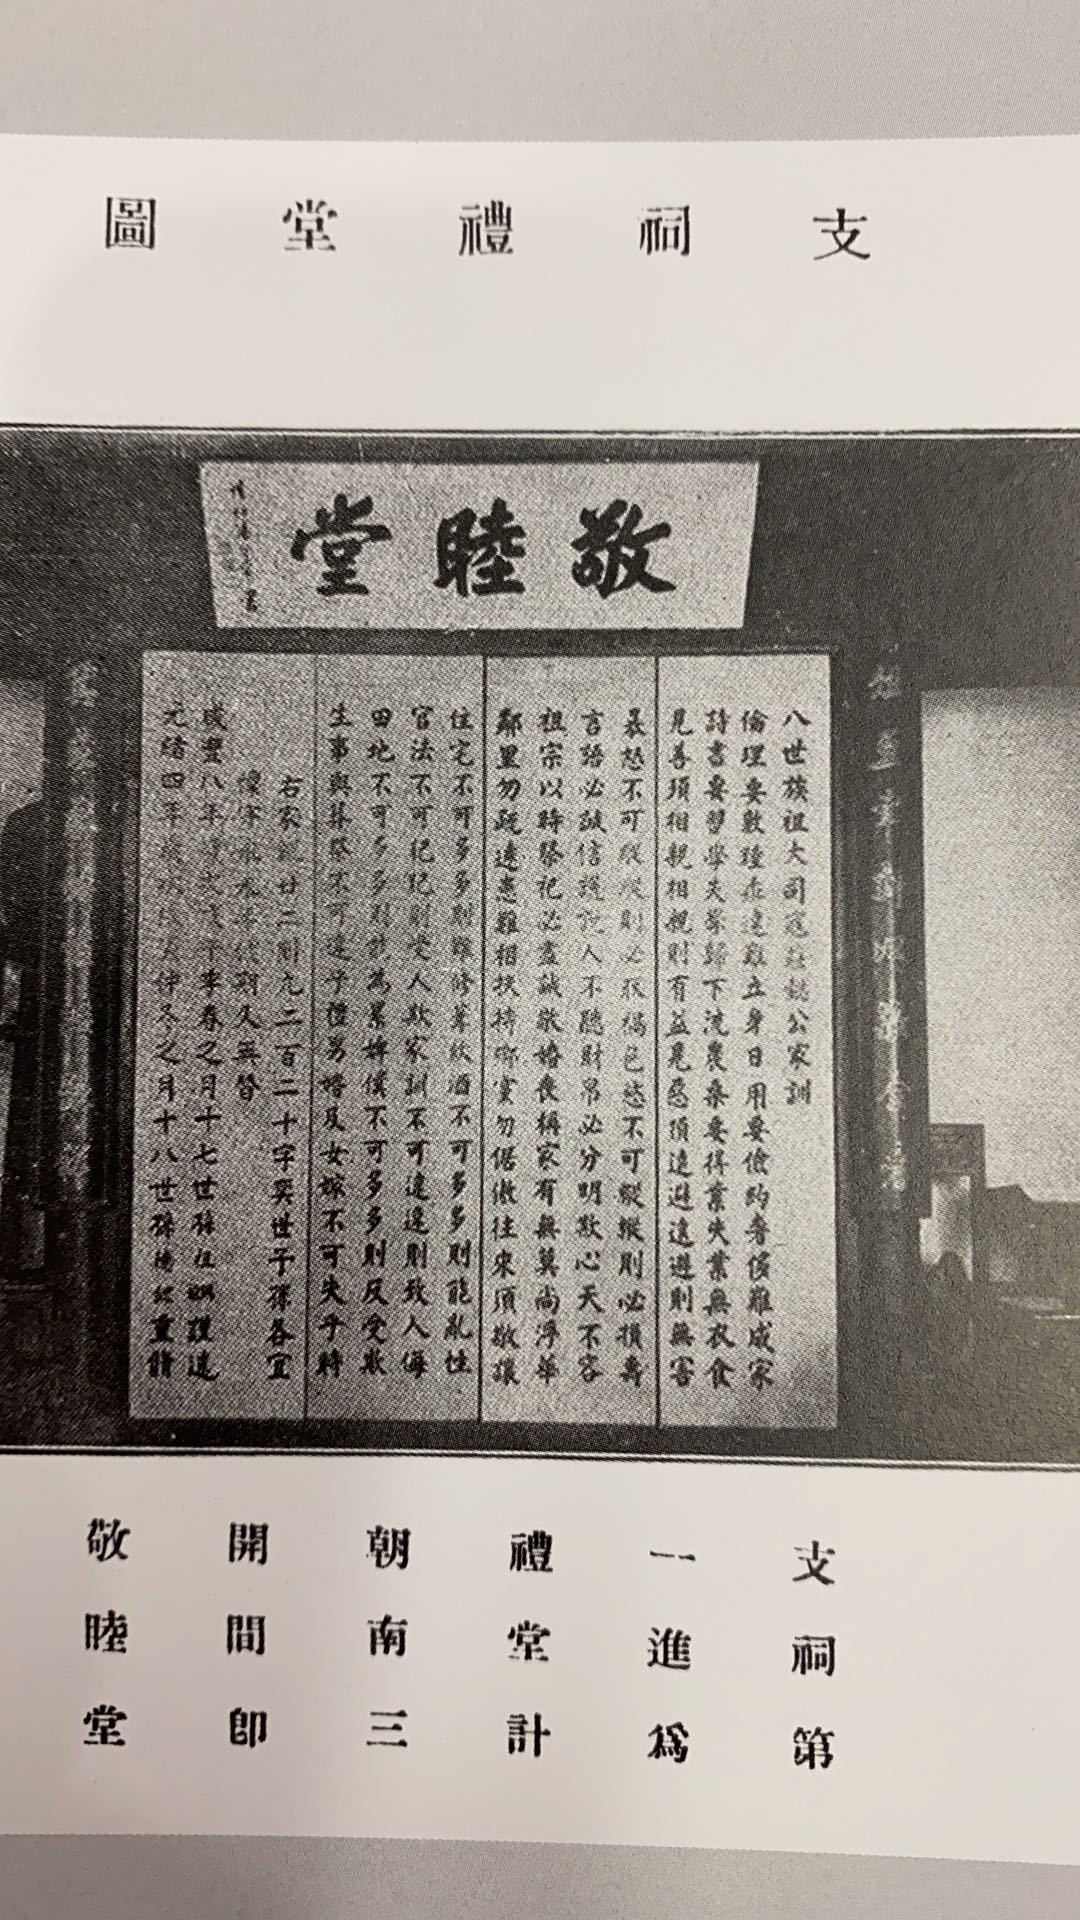 支祠禮堂圖
敬睦堂
八世族祖大司寇莊懿公家訓
倫理要敦理乖違難立身日用要儉約奢侈難成家
詩書要習學失學歸下流農桑要得業失業無衣食
見善須相親相親則有益見惡須遠避遠避則無害
暴怒不可縱縱則必取禍已慾不可縱縱則必損壽
言語必誠信謊詐人不聽財帛必分明欺心天不容
祖宗以時祭祀必盡誠敬婚喪稱家有無莫尚浮華
鄰里勿疏遠患難相扶持鄉黨勿倨傲往來須敬讓
住宅不可多多則難修葺飲酒不可多多則能亂性
官法不可犯犯則受人欺家訓不可違違則致人侮
田地不可多多則為累婢僕不可多多則反受欺
生事與葬祭不可違乎禮男婚及女嫁不可失乎時
右家訓廿二則凡二百二十字奕世子孫各宜
懍守永
咸豐八年季春之月十七世孫謹遺
四年仲冬之月十八世孫重修
支祠第
一進為
禮堂計
朝南三
開間即
敬睦堂